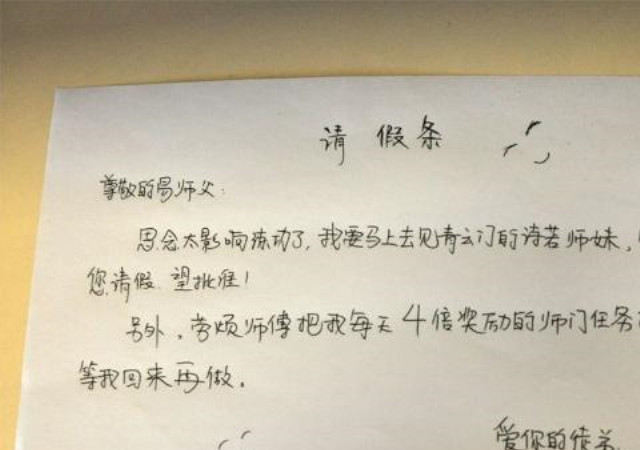 请假条
尊敬的易师父:
思念太影响练功了,我要马上去见青云门的诗若师妹,
您请假.望批准!
另外,劳烦师傅把我每天4倍奖励的师门任务
等我回来再做。
爱你的徒弟